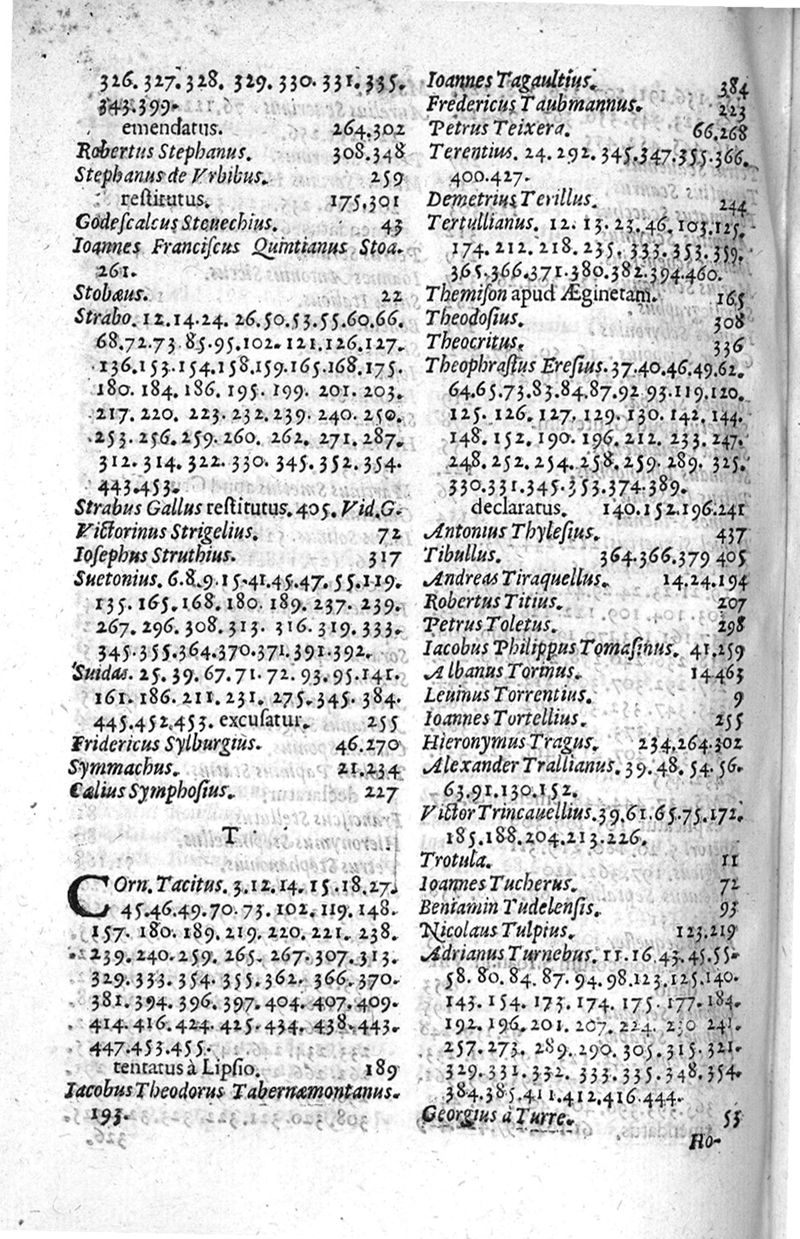 326. 327. 328. 329. 330. 331. 335.
343. 399.
emendatus. 264.302
Robertus Stephanus. 308.348
Stephanus de Vrbibus. 259
restitutus. 175.301
Godescalcus Steuechius. 43
Ioannes Franciscus Quintianus Stoa.
261.
Stobæus. 22
Strabo. 12.14.24. 26.50.53.55.60.66.
68.72.73 85.95.102. 121.126.127.
136.153.154.158.159.165.168.175.
180. 184. 186. 195. 199. 201. 203.
217. 220. 223. 232. 239. 240. 250.
253. 256. 259. 260. 262. 271. 287.
312. 314. 322. 330. 345. 352. 354.
443.453.
Strabus Gallus restitutus. 405. Vid. G.
Victorinus Strigelius. 72
Iosephus Struthius. 317
Suetonius. 6.8.9.15.41.45.47. 55.119.
135. 165. 168. 180. 189. 237. 239.
267. 296. 308. 313. 316. 319. 333.
345.355.364.370.371.391.392.
Suidas. 25. 39. 67. 71. 72. 93. 95. 141.
161. 186. 211. 231. 275. 345. 384.
445.452.453. excusatur. 255
Fridericus Sylburgius. 46.270
Symmachus. 21.234
Cælius Symphosius. 227
T
COrn. Tacitus. 3.12.14. 15.18.27.
45.46.49.70.73. 102.119. 148.
157. 180. 189. 219. 220. 221. 238.
239.240.259. 265. 267.307.313.
329.333. 354. 355.362. 366. 370.
381. 394. 396. 397. 404. 407. 409.
414.416.424.425.434. 438.443.
447.453.455.
tentatus à Lipsio. 189
Iacobus Theodorus Tabernæmontanus.
193.
Ioannes Tagaultius. 384
Fredericus Taubmannus. 223
Petrus Teixera. 66.268
Terentius. 24. 292. 345.347.355.366.
400.427.
Demetrius Terillus. 244
Tertullianus. 12. 13. 23. 46. 103.125.
174. 212. 218. 235. 333. 353. 359.
365.366.371.380.382.394.460.
Themison apud Æginetam. 165
Theodosius. 308
Theocritus. 336
Theophrastus Eresius. 37.40.46.49.62.
64.65.73.83.84.87.92 93.119.120.
125. 126. 127. 129. 130. 142. 144.
148. 152. 190. 196. 212. 233. 247.
248. 252. 254. 258. 259. 289. 325.
330.331.345.353.374.389.
declaratus. 140.152.196.241
Antonius Thylesius. 437
Tibullus. 364.366.379 405
Andreas Tiraquellus. 14.24.194
Robertus Titius. 207
Petrus Toletus. 298
Iacobus Philippus Tomasinus. 41.259
Albanus Torinus. 14463
Leuinus Torrentius. 9
Ioannes Tortellius. 255
Hieronymus Tragus. 234.264.302
Alexander Trallianus. 39. 48. 54. 56.
63.91.130.152.
Victor Trincauellius. 39.61.65.75.172.
185.188.204.213.226.
Trotula. 11
Ioannes Tucherus. 72
Beniamin Tudelensis. 93
Nicolaus Tulpius. 123.219
Adrianus Turnebus. 11.16.43.45.55.
58. 80. 84. 87. 94. 98.123.125.140.
143. 154. 173. 174. 175. 177. 184.
192. 196. 201. 207. 224. 230 241.
257. 273. 289. 290. 305. 315. 321.
329. 331. 332. 333. 335. 348. 354.
384.385.411.412.416.444.
Georgius à Turre. 53
Ho-